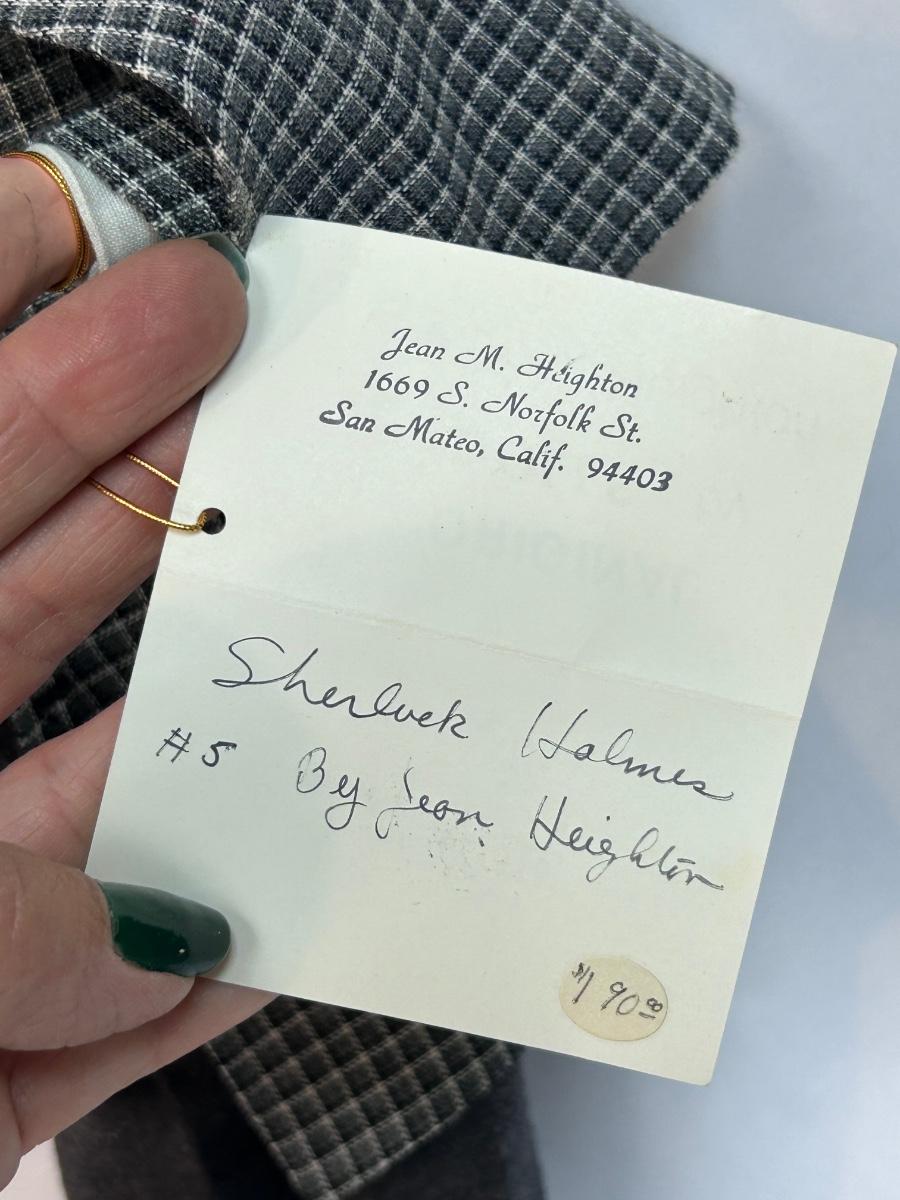 Jean M. Heighton
1669 S. Norfolk St.
San Mateo, Calif. 94403
Sherlock Holmes
#5 By Jean Heighton
$190.00